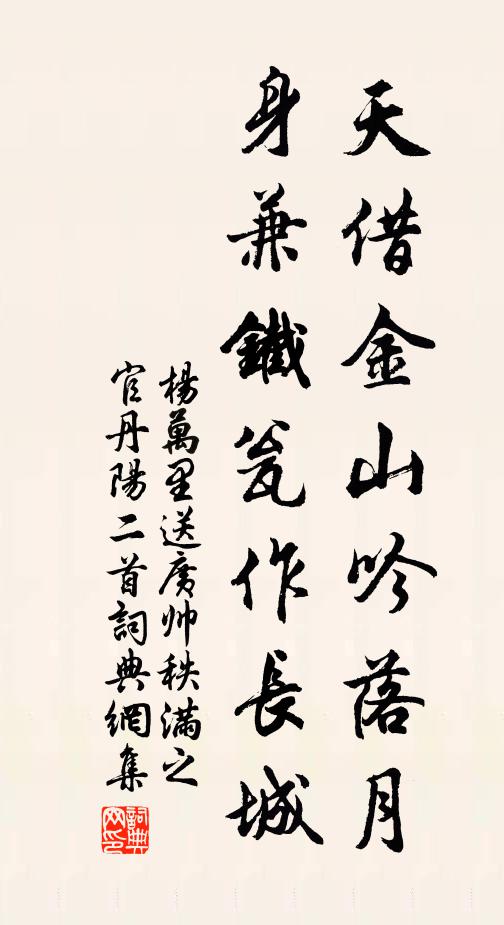 天借金山吟落月
身兼鐵瓮作長城
楊萬里送廣帅秩滿之
官丹陽二首詞典網集
詞典
网印